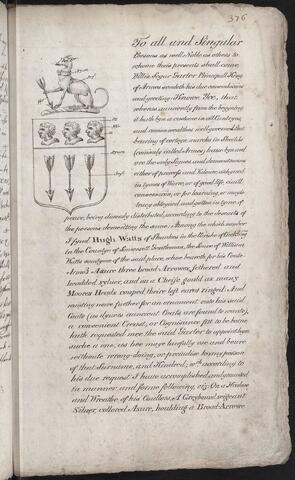 376
To all and Singular
Persons as well Noble as others to
whome theis presents shall come
Will'm Segar Garter Principall King
of Armes sendeth his due comendacons
and greeting. Knowe Yee, that
wheras aunciently from the begining
it hath byn a custome in all Countryes
and comon wealthes well governed that
bearing of certayne marcks in Sheilds
comonly called Armes, have byn and
are the only Signes and demonstracons
either of prowesse and Valoure atchieved
in tymes of Warre, or of good life, and
conversacon, or for learning, or magis-
tracy obteyned and gotten in tyme of
peace, being diversly distributed, according to the desearts of
the persons demeritting the same. Among the which number
I fynd Hugh Watts of in the
in the County of Somersett Gentleman, the Sonne of William
Watts sometyme of the said place, whoe beareth for his Coate-
Armes Azure three broad Arrowes, fethered and
headded sylver, and on a Cheife gould as many
Moores Heads couped their left eares ringed. And
wanting more further for an ornament unto his said
Coate (as dyvers auncient Coats are found to wante),
a convenient Creast, or Cognisaunce fitt to be borne
hath requested mee, the said Garter to appoint hym
suche a one, as hee maye lawfully use and beare
withoute wrong-doing, or prejudice to any person
of that Surname, and Kindred; wch according to
his due request I have accomplished and graunted
in manner, and forme following, viz: On a Healme
and Wreathe of his Coullors, A Greyhound sejeant
Silver, collered Azure, houlding a Broad-Arrowe